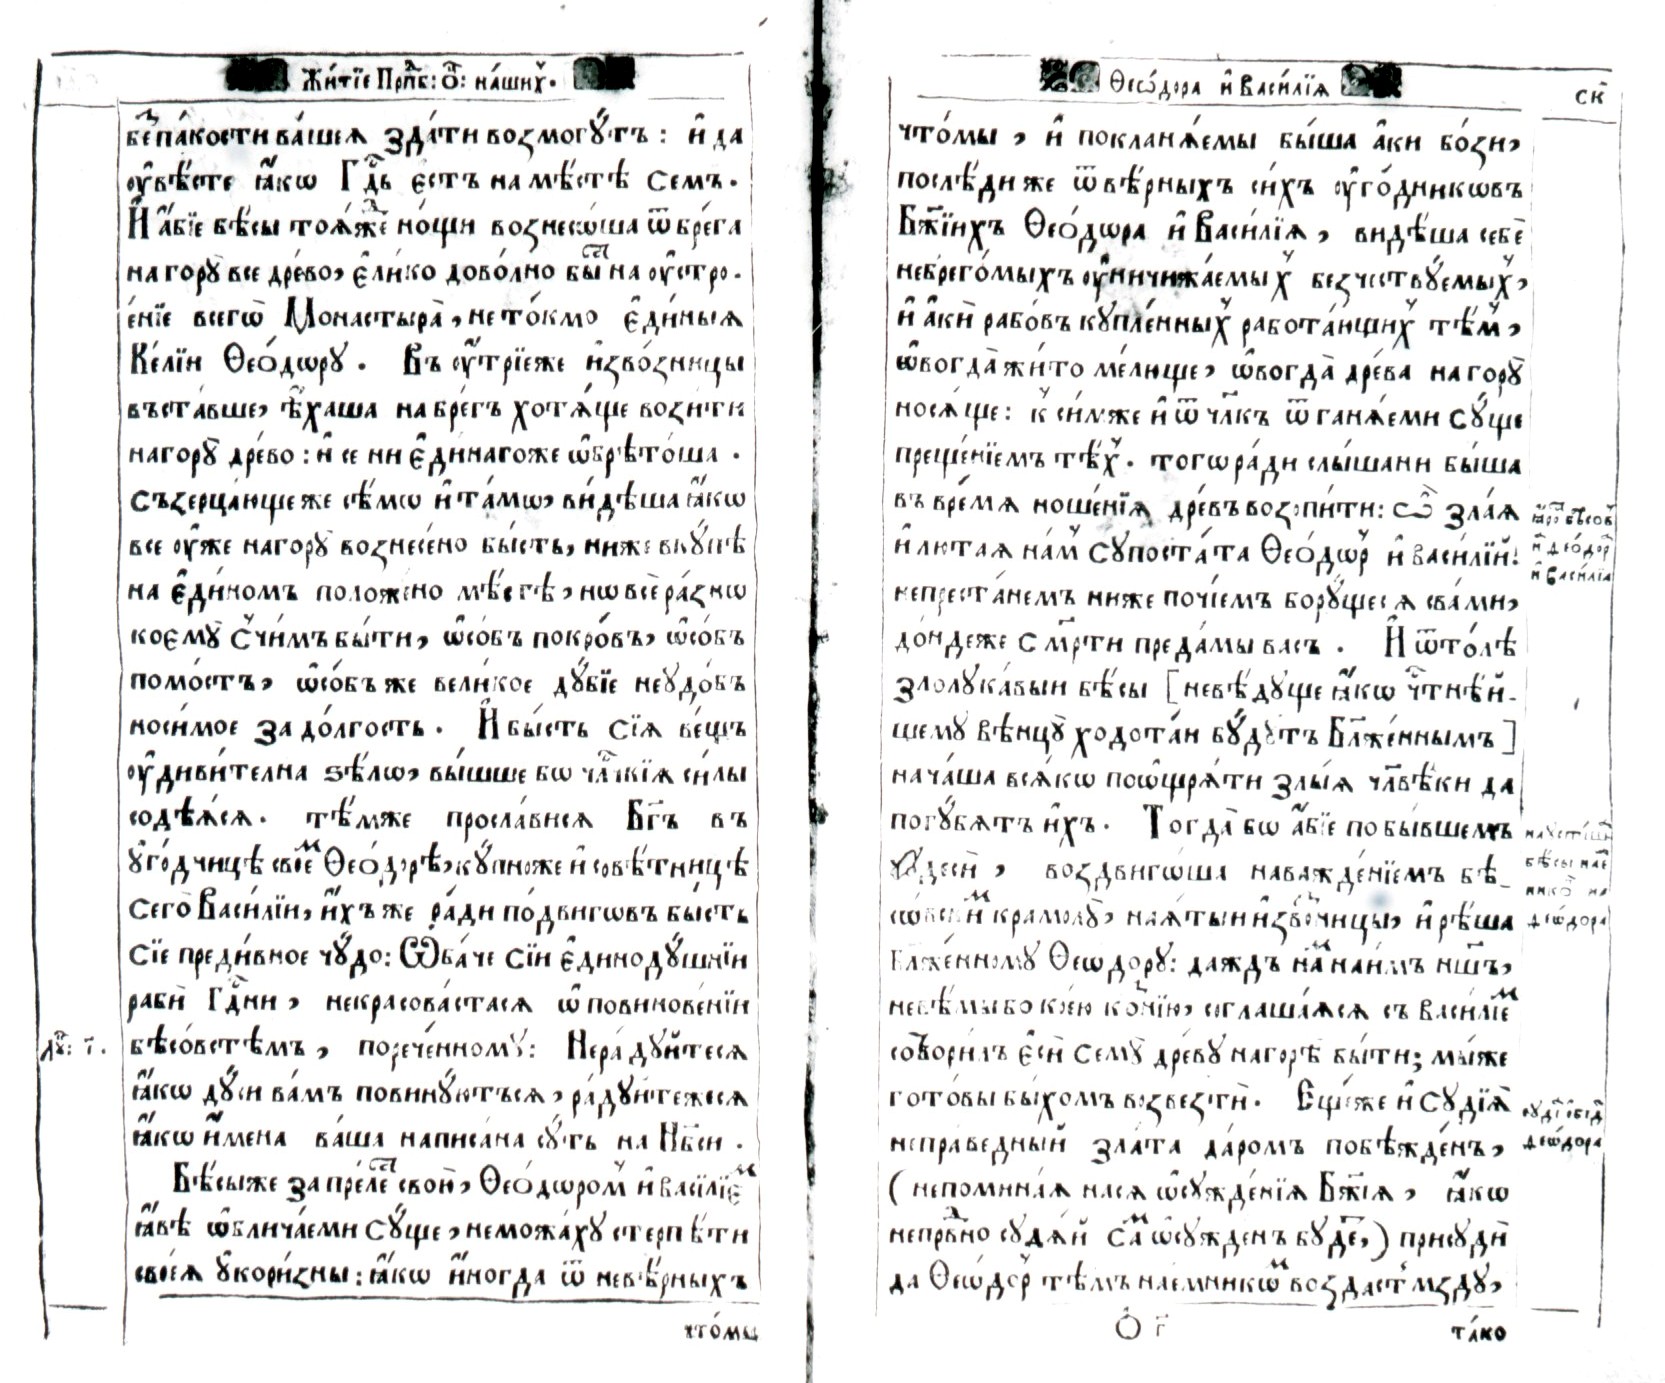 Житїе Прпб: Ѡ҃: на́шиⷯ.
беⷥпа́кости ва́шеѧ зда́ти возмогꙋ́тъ: и҆ да
ᲂу҆вѣ́сте ꙗ҆́кѡ Гдⷭ҇ь є҆́стъ на мѣ́стѣ семъ.
И҆ а҆́бїе бѣ́сы тоѧ́же но́щи вознесо́ша ѿ бре́га
на горꙋ̀ все дре́во, є҆ли́ко дово́лно быⷭ҇ на ᲂу҆стро-
е́нїе всегѡ̀ Монастырѧ̀, не то́кмо є҆ди́ныѧ
Ке́лїи Ѳео́дѡрꙋ. Въ ᲂу҆́трїеже и҆зво́зницы
въста́вше, ѣ҆́хаша на бре́гъ хотѧ́ще вози́ти
на горꙋ̀ дре́во: и҆ се ни є҆ди́нагоже ѡ҆брѣто́ша.
Съзерца́юще же сѣ́мѡ и҆ та́мѡ, ви́дѣша ꙗ҆́кѡ
все ᲂу҆́же на горꙋ̀ вознесе́но бы́сть, ниже вкꙋ́пѣ
на є҆ди́номъ положено мѣ́стѣ, но все ра́знѡ
коемꙋ̀ с̾чи́мъ бы́ти, ѡ҆со́бъ покро́въ, ѡ҆со́бъ
помо́стъ, ѡ҆со́бъ же вели́кое дꙋ́бїе неудо́бъ
носи́мое за до́лгость. И҆ бы́сть сїѧ ве́щъ
ᲂу҆диви́телна ѕѣ́лѡ, вы́шше бѡ чл҃чкїѧ си́лы
содѣ́ѧсѧ. тѣ́мже просла́висѧ Бг҃ъ въ
ᲂу҆го́дчицѣ своеⷨ Ѳео́дорѣ, кꙋ́пноже и҆ совѣ́тницѣ
Сего̀ Васи́лїи, и҆́хъ же ра́ди по́двигѡвъ бы́сть
Сїе преди́вное чꙋ́до: Ѻба́че Сїи є҆динодꙋ́шнїи
раби̑ Гдⷭ҇ни, некрасова́стасѧ ѡ҆ повинове́нїи
бѣсо́встѣмъ, порече́нномꙋ: Нера́дꙋйтесѧ
ꙗ҆́кѡ дꙋ́си ва́мъ повинꙋ́ютъсѧ, ра́дꙋйтежесѧ
ꙗ҆́кѡ и҆́мена ва́ша написа́на сꙋ́ть на Нб҃си.
Бѣ́сыже за пре́леⷭ҇ свою̀, Ѳео́дѡромⷨ и҆ васїлїеⷨ
ꙗ҆́вѣ ѡ҆блича́еми сꙋ́ще, неможа́хꙋ стерпѣ́ти
своеѧ̀ ᲂу҆кори́зны: ꙗ҆́кѡ и҆́ногда ѿ невѣ́рныхъ
что́мы
Ѳео́дора и҆ Васи́лїѧ
ск҃
что́мы, и҆ покланѧ́емы бы́ша а҆́ки бо́зи,
послѣ́ди же ѿ вѣ́рныхъ си́хъ ᲂу҆го́дникѡвъ
Бж҃їихъ Ѳео́дѡра и҆ Васи́лїѧ, ви́дѣша себѐ
небрего́мыхъ ᲂу҆ничижа́емыⷯ безче́ствꙋемыⷯ,
и҆ а҆́ки рабо́въ кꙋпле́нныⷯ рабо́тающиⷯ тѣ́ⷨ,
ѡ҆вогда̀ жи́то ме́люще, ѡ҆вогда̀ дре́ва на горꙋ̀
носѧ́ще: к̾ си́мже и҆ ѿ чл҃къ ѿганѧ́еми сꙋ́ще
преще́нїемъ тѣ́ⷯ. тогѡ ра́ди слы́шани бы́ша
въ вре́мѧ ноше́нїѧ дре́въ возопи́ти: Ѽ злаѧ
и҆ лютаѧ на́ⷨ сꙋпоста́та Ѳео́дѡⷬ и҆ васи́лїй!
непреста́немъ ниже почїемъ борꙋ́щесѧ сва́ми,
до́ндеже см҃рти преда́мы васъ. И҆ ѿто́лѣ
злолꙋка́выи бѣ́сы [невѣ́дꙋще ꙗ҆́кѡ чⷭ҇тнѣ́й-
шемꙋ вѣнцꙋ̀ ходота́и бꙋ́дꙋтъ Бл҃же́ннымъ]
нача́ша всѧ́кѡ поѡ҆щрѧ́ти злы́ѧ чл҃вѣ́ки да
погꙋ́бѧтъ и҆́хъ. Тогда̀ бѡ а҆́бїе по бы́вшемъ
чꙋдеси̑, воздвигѡ́ша наважде́нїемъ бѣ-
со́вскиⷨ крамолꙋ̀, наѧ́тыи и҆зво́зчицы, и҆ рѣ́ша
Бл҃же́нномꙋ Ѳеѡдорꙋ: даждъ наⷨ наи́мъ нш҃ъ,
невѣ́мы бо ко́ею ко́знїю, соглаша́ѧсѧ съ васи́лїеⷨ
сотвори́лъ є҆сѝ семꙋ̀ дре́вꙋ на горѣ̀ бы́ти; мы́же
гото́вы бы́хомъ возвезти̑. Ещеже и҆ сꙋдїѧ̀
непра́ведный зла́та да́ромъ побѣжде́нъ,
(непомина́ѧ на сѧ ѡ҆сꙋжде́нїѧ Бж҃їѧ, ꙗ҆́кѡ
непрⷡ҇но сꙋдѧ́й саⷨ ѡ҆сꙋ́жденъ бꙋ́деⷮ,) присꙋдѝ
да Ѳеѡ́дѡⷬ тѣ́мъ нае́мникѡⷨ возда́стъ мздꙋ̀,
та́ко
лꙋⷦ: і҃.
ꙗ҆́рⷭ҇ бѣсоⷡ
и҆ Ѳео́дорⷶ
и҆ васи́лїа
наꙋсти́ша
бѣ́сы нае́
никоⷡ на
Ѳео́дора
сꙋдїⷶ ѡби́дⷤ
Ѳео́дора
Ѻ г҃